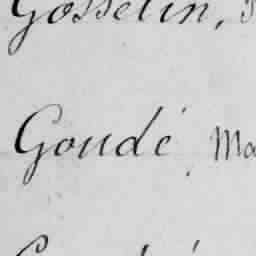 Gosselin,
Goudé, Ma